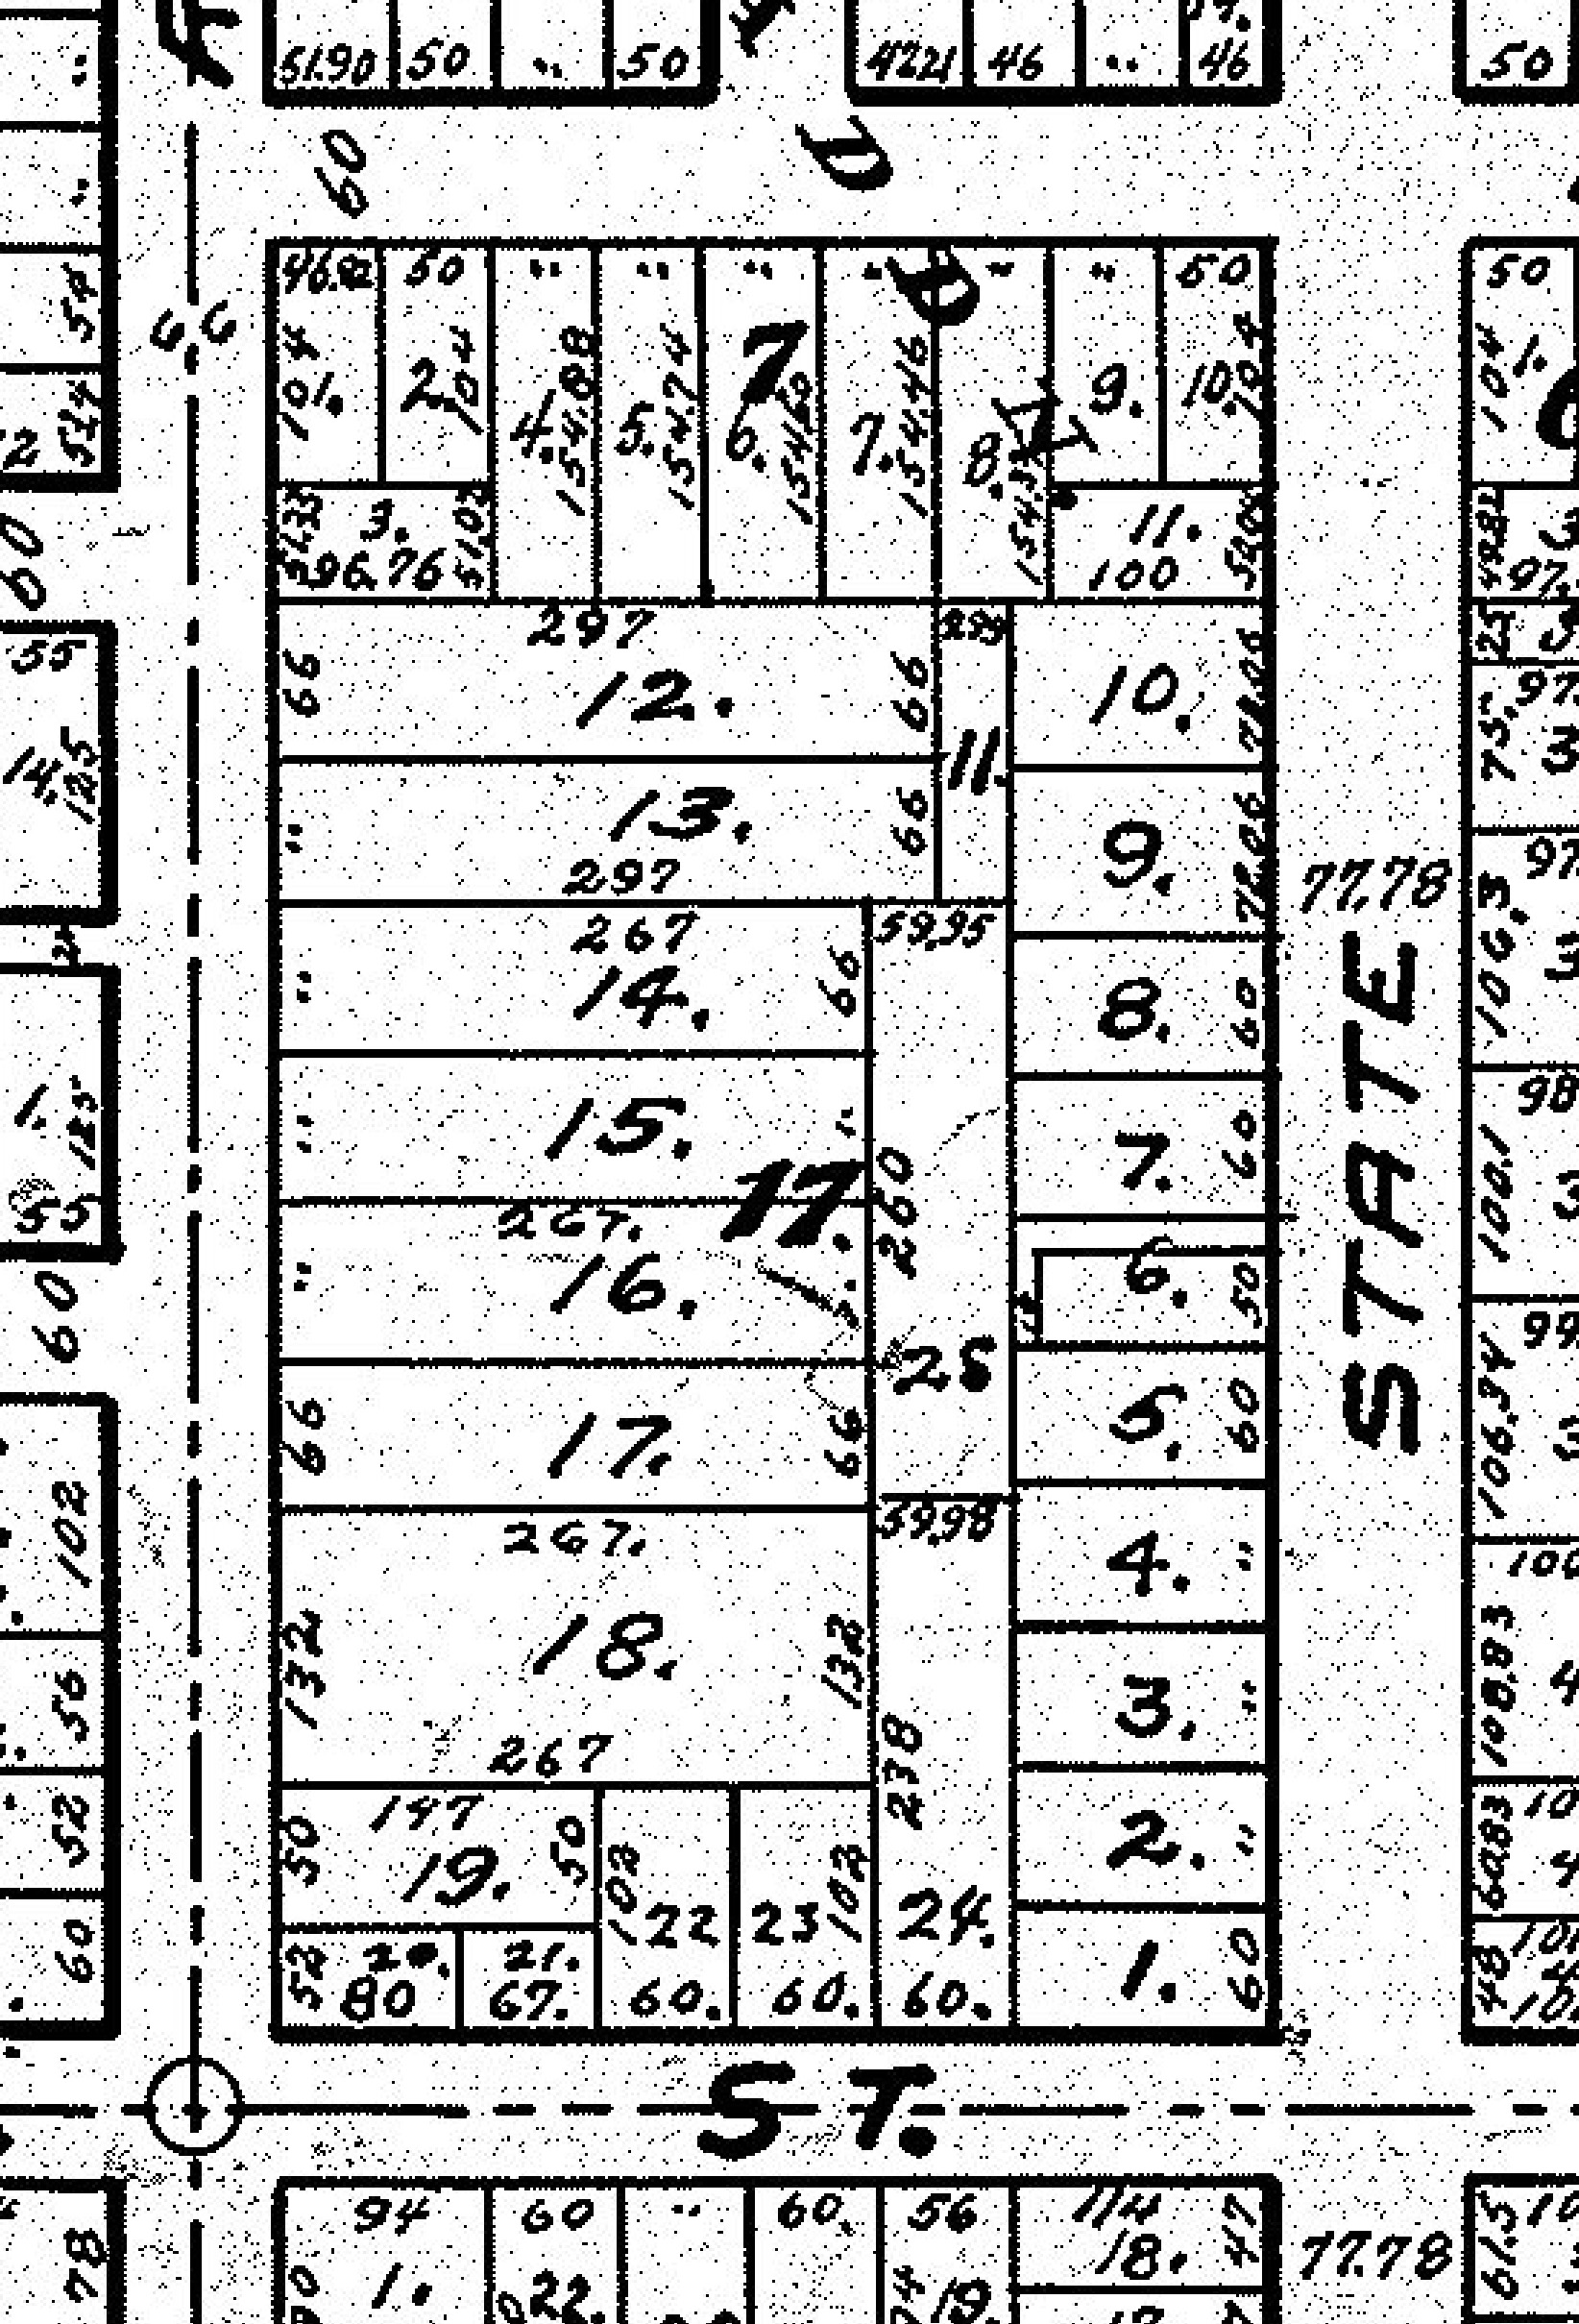 51.90 50 " 50 4221 46 " 46
50
60
D
66
50 " " " " " " 50
50
54
104 1. 2. 104 4. 154.88 5. 154.74 7 6. 154.60 7. 154.46 8. 9. 10. 104
104 1.
52.4
51.33 3. 51.02 11.
96.76 100
60
297
55
66 12. 66 10.
25
14. 125
11.
75.
" 13. 66 9. 72.06
297
77.78
106.3
267 59.95
" 14. 66 8. 60
STATE
1. 125
" 15. " 7. 60
100.1
17. 260
267.
" 16. " 6. 50
60
25
66 17. 66 5. 60
106.34
102
267. 59.98
4. "
132 18. 132 3. "
108.83
56
267 238
52
147
50 19. 50 2. "
60.83
102 22 23 102 24.
60
52 20. 21. 1. 60
80 67. 60. 60. 60.
48
ST.
94 60 " 60. 56 114 47
78
1. 22. 19. 18.
77.78
61.5